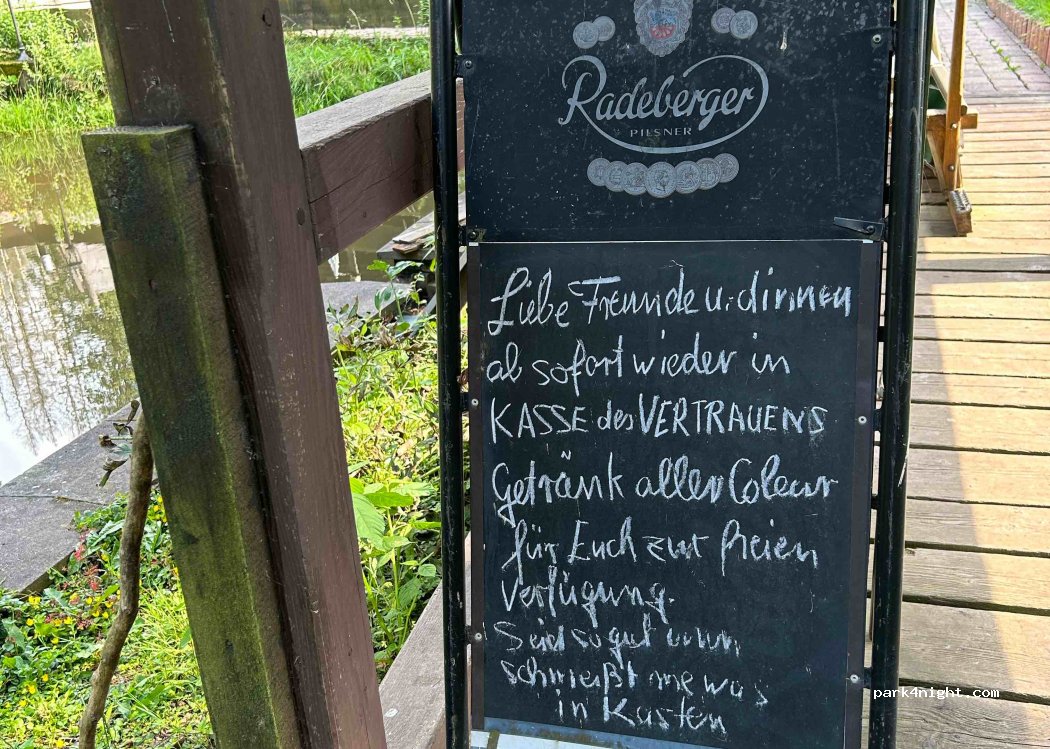 Radeberger
PILSNER
Liebe Freunde u. dinnen
ab sofort wieder in
KASSE des VERTRAUENS
Getränk aller Coleur
für Euch zur freien
Verfügung.
Seid so gut unn
schmeißt me was
in Kasten
park4night.com